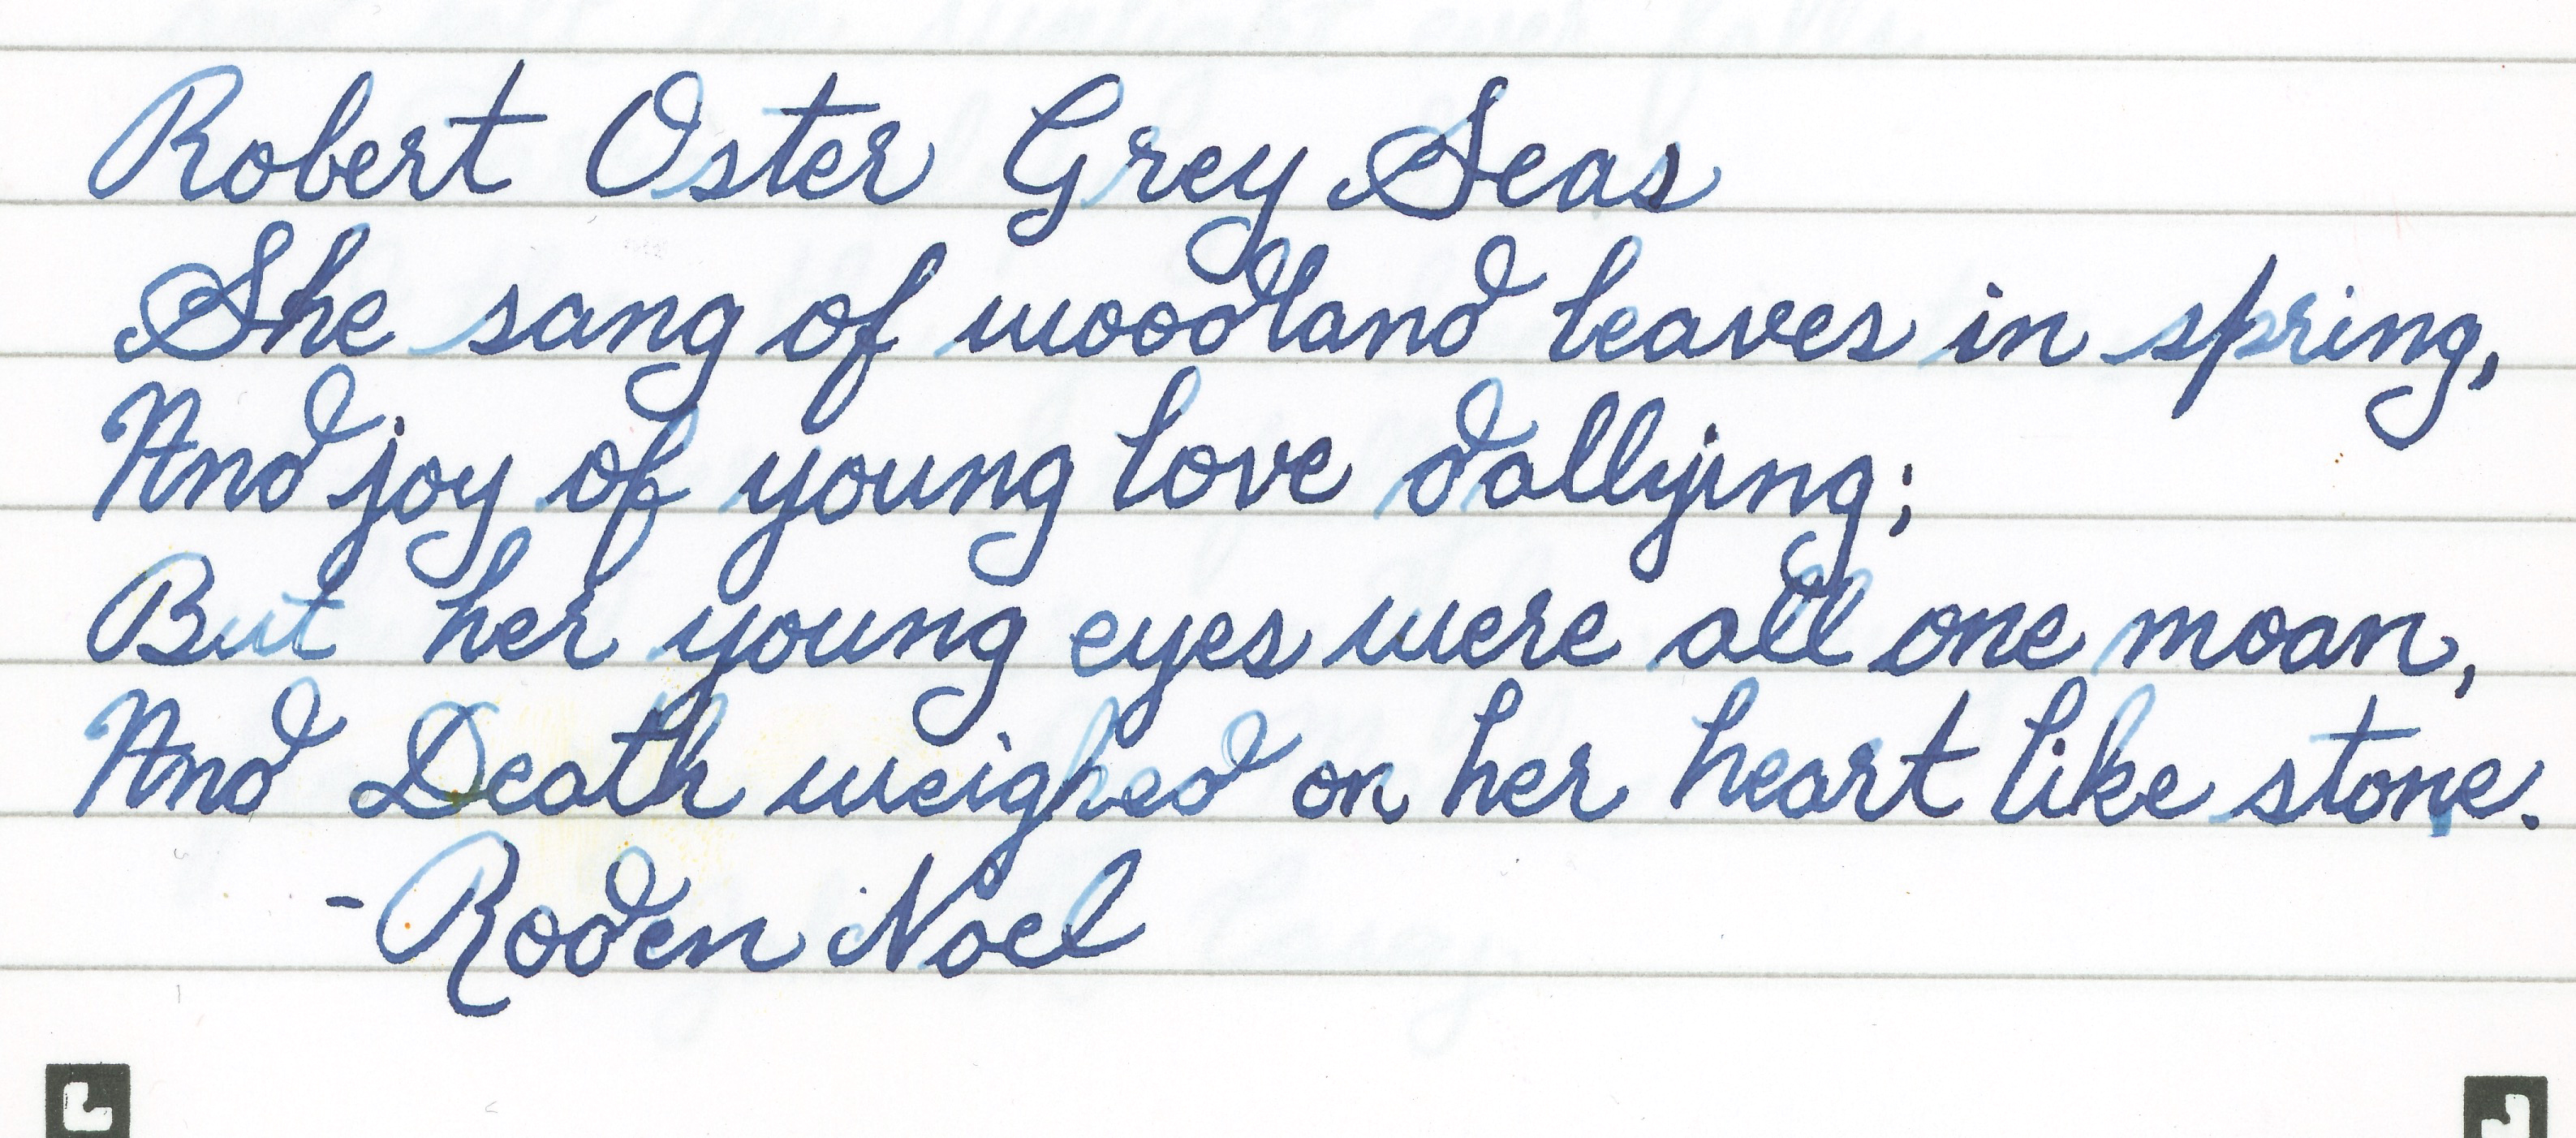 Robert Oster Grey Seas
She sang of woodland leaves in spring,
And joy of young love dallying;
But her young eyes were all one moan,
And Death weighed on her heart like stone.
- Roden Noel